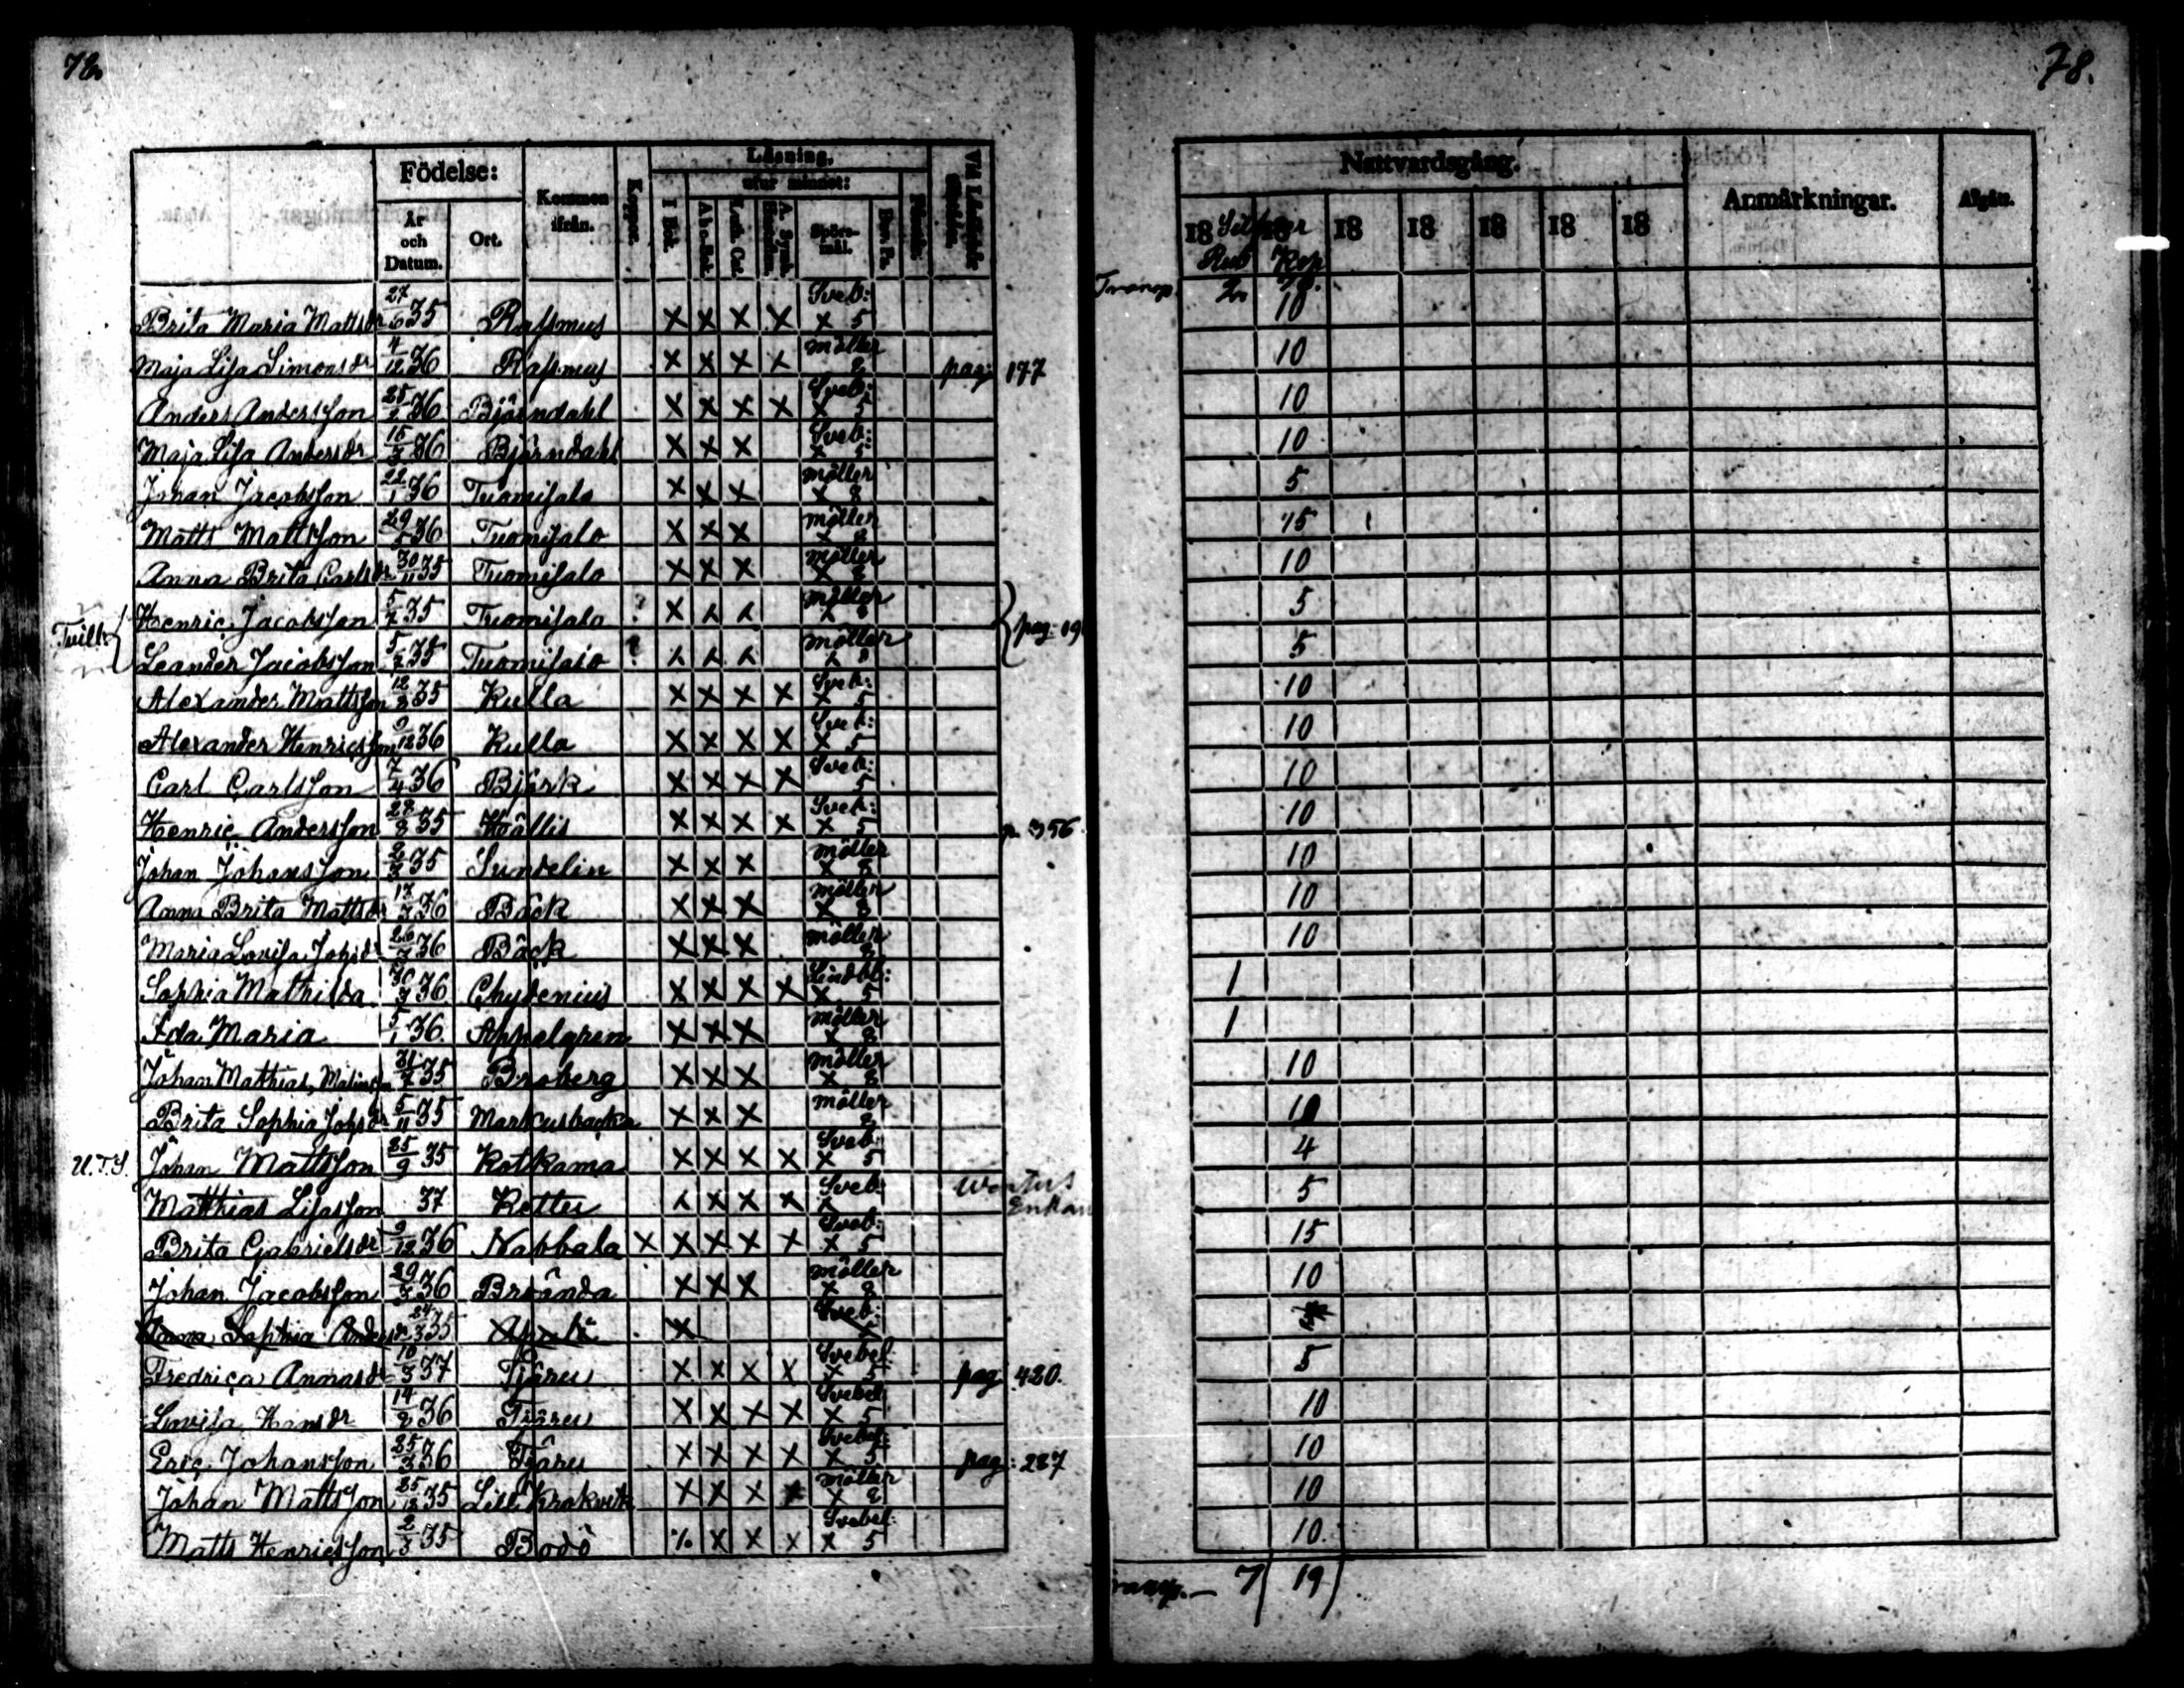 78.
78.
Födelse:
År och Datum.
Ort.
Kommen ifrån.
Koppor.
Läsning.
utur minnet:
I Bok.
A b c-Bok.
Luth. Cat.
Spörsmål.
Nattvardsgång.
18 18 18 18 18 18 18
Silfver
Rub Kop
Anmärkningar.
Afgått.
Transp. 2
Brita Maria Mattsdr 27/6 35 Rassmus x x x x Sveb: x 5 10
Maja Lisa Simonsdr 4/12 36 Rassmus x x x x möller 8 pag: 177 10
Anders Andersson 25/2 36 Björndahl x x x x Sveb: x 5 10
Maja Lisa Andersdr 15/7 36 Björndahl x x x Sveb: x 5 10
Johan Jacobsson 22/1 36 Tuomisalo x x x möller x 8 5
Matts Mattsson 29/5 36 Tuomisalo x x x möller x 8 15
Anna Brita Carlsdr 30/11 35 Tuomisalo x x x möller x 8 10
Tvill:
Henric Jacobsson 5/7 35 Tuomisalo ? x x x möller x 8 pag: 19 5
Leander Jacobsson 5/7 35 Tuomisalo ? x x x möller x 8 5
Alexander Mattsson 12/8 35 Kulla x x x x Sveb: x 5 10
Alexander Henricsson 9/12 36 Kulla x x x x Sveb: x 5 10
Carl Carlsson 7/4 36 Björk x x x x Sveb: 5 10
Henric Andersson 28/8 35 Hällis x x x x Sveb: x 5 p. 356 10
Johan Johansson 35 Sundelin x x x möller x 8 10
Anna Brita Mattsdr 17/7 36 Bäck x x x möller x 8 10
Maria Lovisa Johsdr 26/7 36 Bäck x x x möller 8 10
Sophia Mathilda 30/3 36 Chydenius x x x x Lindbl: x 5 1
Ida Maria 5/1 36. Appelgren x x x möller x 8 1
Johan Mathias 31/7 35 Broberg x x x möller x 8 10
Brita Sophia Johsdr 5/11 35 Marcusbacka x x x möller 8 10
U.T.S. Johan Mattsson 25/9 35 Kotkama x x x x Sveb: x 5 4
Matthias Lisasson 37 Rettei x x x x Sveb: x 5
Brita Gabrielsdr 9/12 36 Nabbala x x x x x Sveb: x 5 15
Johan Jacobsson 29/7 36 Brända x x x möller x 8 10
Anna Sophia Andersdr 24/3 35 x Sveb:
Fredrica Annasdr 10/3 37 Tjäru x x x x Svebel: x 5 pag 420. 5
Lovisa Hansdr 14/2 36 Tjäru x x x x Svebel: x 5 10
Eric Johansson 25/3 36 Tjäru x x x x Svebel: x 5 pag: 287 10
Johan Mattsson 25/12 35 Lill Krokvik x x x möller x 8 10
Matts Henricsson 2/3 35 Bodö x x x Svebel: x 5 10.
Transp.— 7 19